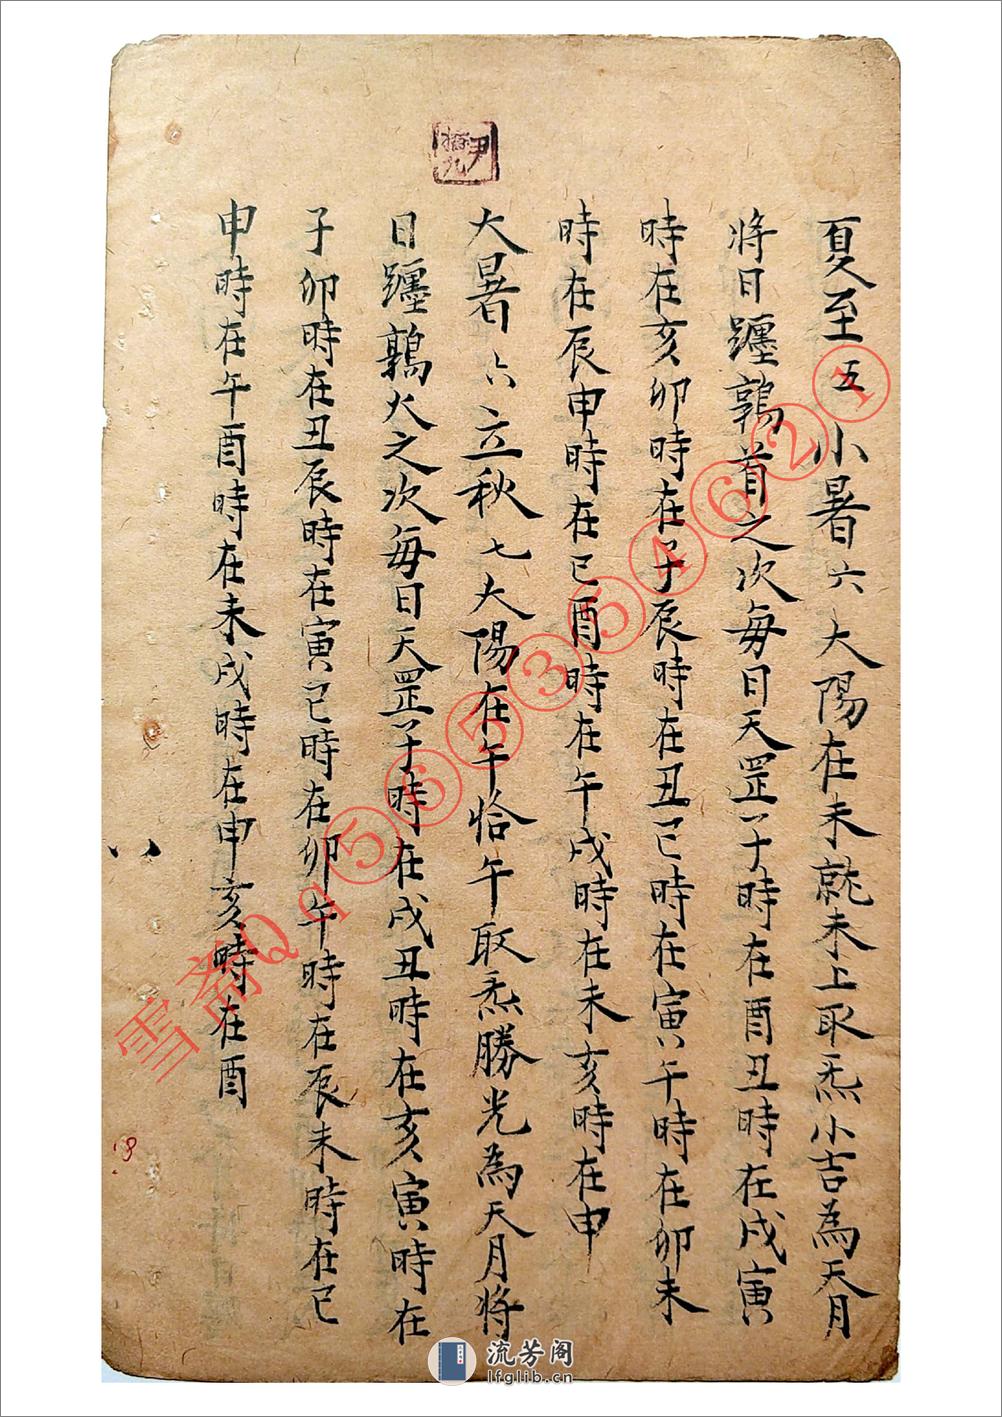 夏至五小暑六大陽在未就未上取炁小吉為天月
將日躔鶉首之次每日天罡子時在酉丑時在戌寅
時在亥卯時在子辰時在丑巳時在寅午時在卯未
時在辰申時在巳酉時在午戌時在未亥時在申
大暑六立秋七大陽在午恰午取炁勝光為天月將
日躔鶉火之次每日天罡子時在戌丑時在亥寅時在
子卯時在丑辰時在寅巳時在卯午時在辰未時在巳
申時在午酉時在未戌時在申亥時在酉
八
雪斋Qq565354621
流芳阁
lfglib.cn